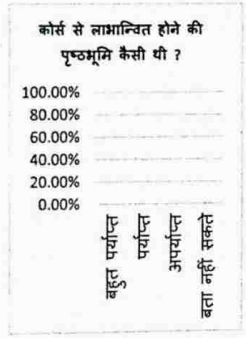 कोर्स से लाभान्वित होने की
पृष्ठभूमि कैसी थी ?
100.00%
80.00%
60.00%
40.00%
20.00%
0.00%
बहुत पर्याप्त
पर्याप्त
अपर्याप्त
बता नहीं सकते